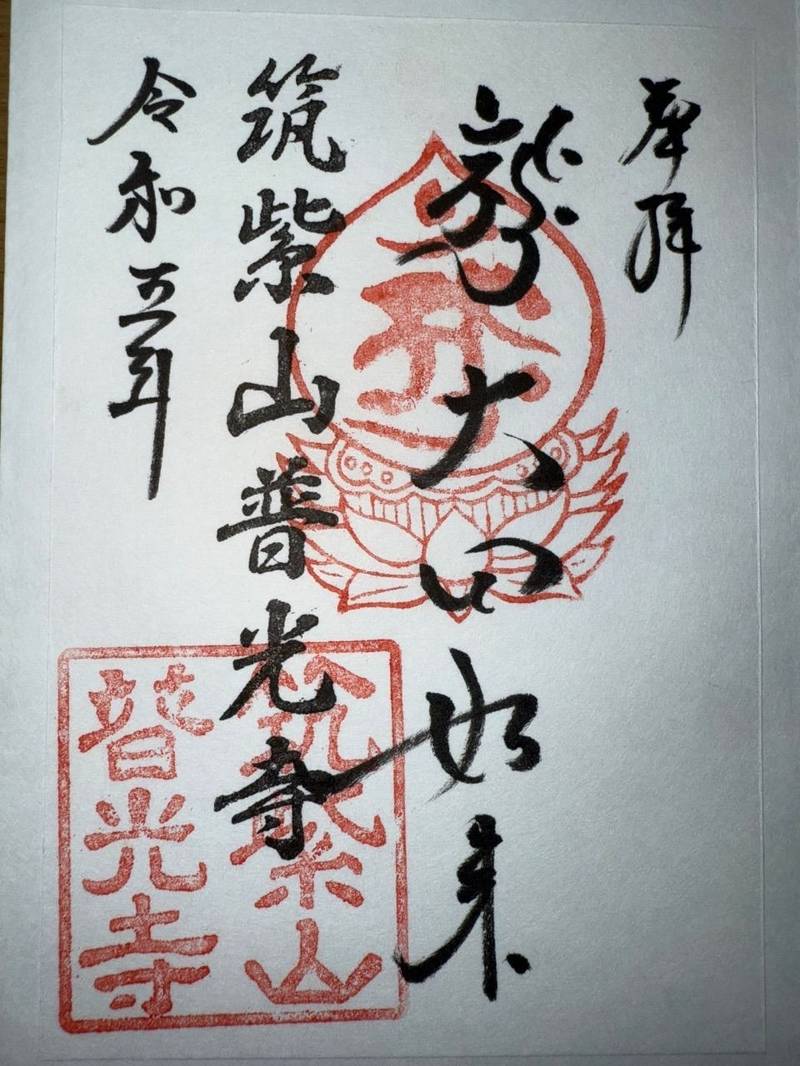 奉拝
大日如来
筑紫山普光寺
令和五年
筑紫山
普光寺